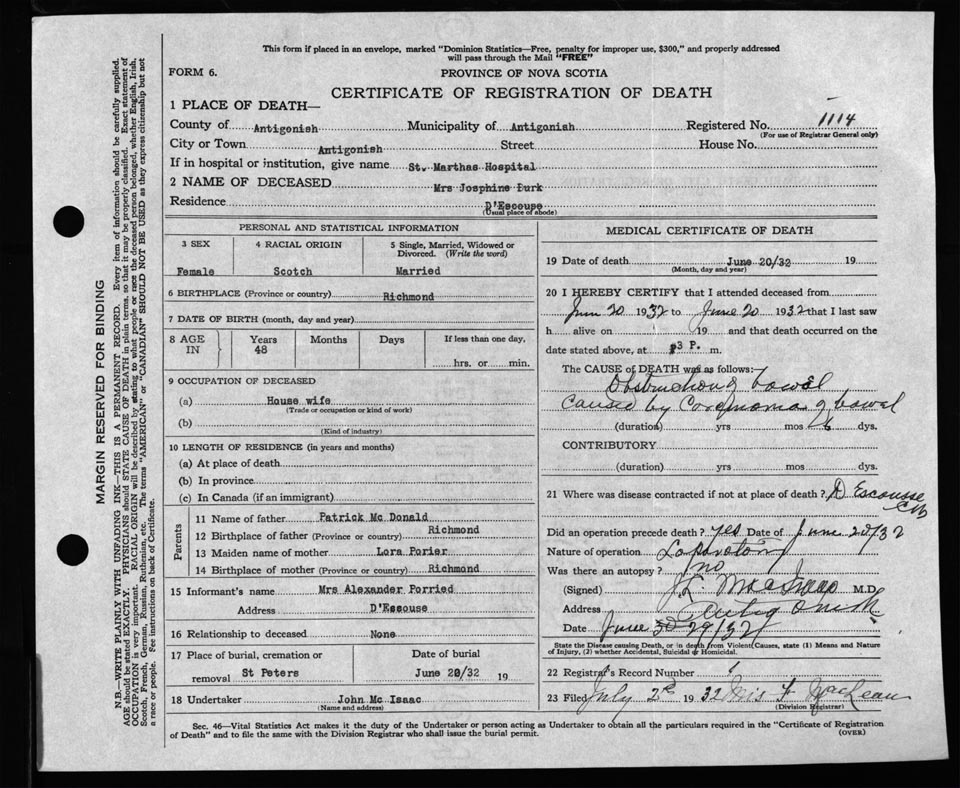 This form if placed in an envelope, marked "Dominion Statistics—Free, penalty for improper use, $300," and properly addressed
will pass through the Mail "FREE"
FORM 6.
PROVINCE OF NOVA SCOTIA
CERTIFICATE OF REGISTRATION OF DEATH
1 PLACE OF DEATH—
County of Antigonish Municipality of Antigonish Registered No. 1114
(For use of Registrar General only)
City or Town Antigonish Street House No.
If in hospital or institution, give name St. Marthas Hospital
2 NAME OF DECEASED Mrs Josphine Burk
Residence D'Escouse
(Usual place of abode)
PERSONAL AND STATISTICAL INFORMATION
3 SEX 4 RACIAL ORIGIN 5 Single, Married, Widowed or
Divorced. (Write the word)
Female Scotch Married
6 BIRTHPLACE (Province or country) Richmond
7 DATE OF BIRTH (month, day and year)
8 AGE Years Months Days If less than one day,
IN 48
hrs. or min.
9 OCCUPATION OF DECEASED
(a) House wife
(Trade or occupation or kind of work)
(b)
(Kind of industry)
10 LENGTH OF RESIDENCE (in years and months)
(a) At place of death
(b) In province
(c) In Canada (if an immigrant)
Parents
11 Name of father Patrick Mc Donald
12 Birthplace of father (Province or country) Richmond
13 Maiden name of mother Lora Porier
14 Birthplace of mother (Province or country) Richmond
15 Informant's name Mrs Alexander Porried
Address D'Escouse
16 Relationship to deceased None
17 Place of burial, cremation or Date of burial
removal St Peters June 20/32 19
18 Undertaker John Mc Isaac
(Name and address)
MEDICAL CERTIFICATE OF DEATH
19 Date of death June 20/32 19
(Month, day and year)
20 I HEREBY CERTIFY that I attended deceased from
June 20 1932 to June 20 1932 that I last saw
h alive on 19 and that death occurred on
date stated above, at 3 P. m.
The CAUSE OF DEATH was as follows:
Obstruction of bowel
Caused by Carcinoma of bowel
(duration) yrs mos 6 dys.
CONTRIBUTORY
(duration) yrs. mos. dys.
21 Where was disease contracted if not at place of death? D Escousse
CB
Did an operation precede death? Yes Date of June 20/32
Nature of operation Laparotomy
Was there an autopsy? no
(Signed) M.D.
Address Antigonish
Date June 29/32
State the Disease causing Death, or in death from Violent Causes, state (1) Means and Nature
of Injury, (2) whether Accidental, Suicidal or Homicidal.
22 Registrar's Record Number
23 Filed July 2nd 1932 F MacLean
(Division Registrar)
Sec. 46—Vital Statistics Act makes it the duty of the Undertaker or person acting as Undertaker to obtain all the particulars required in the "Certificate of Registration
of Death" and to file the same with the Division Registrar who shall issue the burial permit. (OVER)
MARGIN RESERVED FOR BINDING
N.B.—WRITE PLAINLY WITH UNFADING INK—THIS IS A PERMANENT RECORD. Every item of information should be carefully supplied.
AGE should be stated EXACTLY. PHYSICIANS should STATE CAUSE OF DEATH in plain terms, so that it may be properly classified. Exact statement of
OCCUPATION is very important. RACIAL ORIGIN will be described by stating to what people or race the deceased person belonged, whether English, Irish,
Scotch, French, German, Russian, Ruthenian, etc. The terms "AMERICAN" or "CANADIAN" SHOULD NOT BE USED as they express citizenship but not
a race or people. See instructions on back of Certificate.